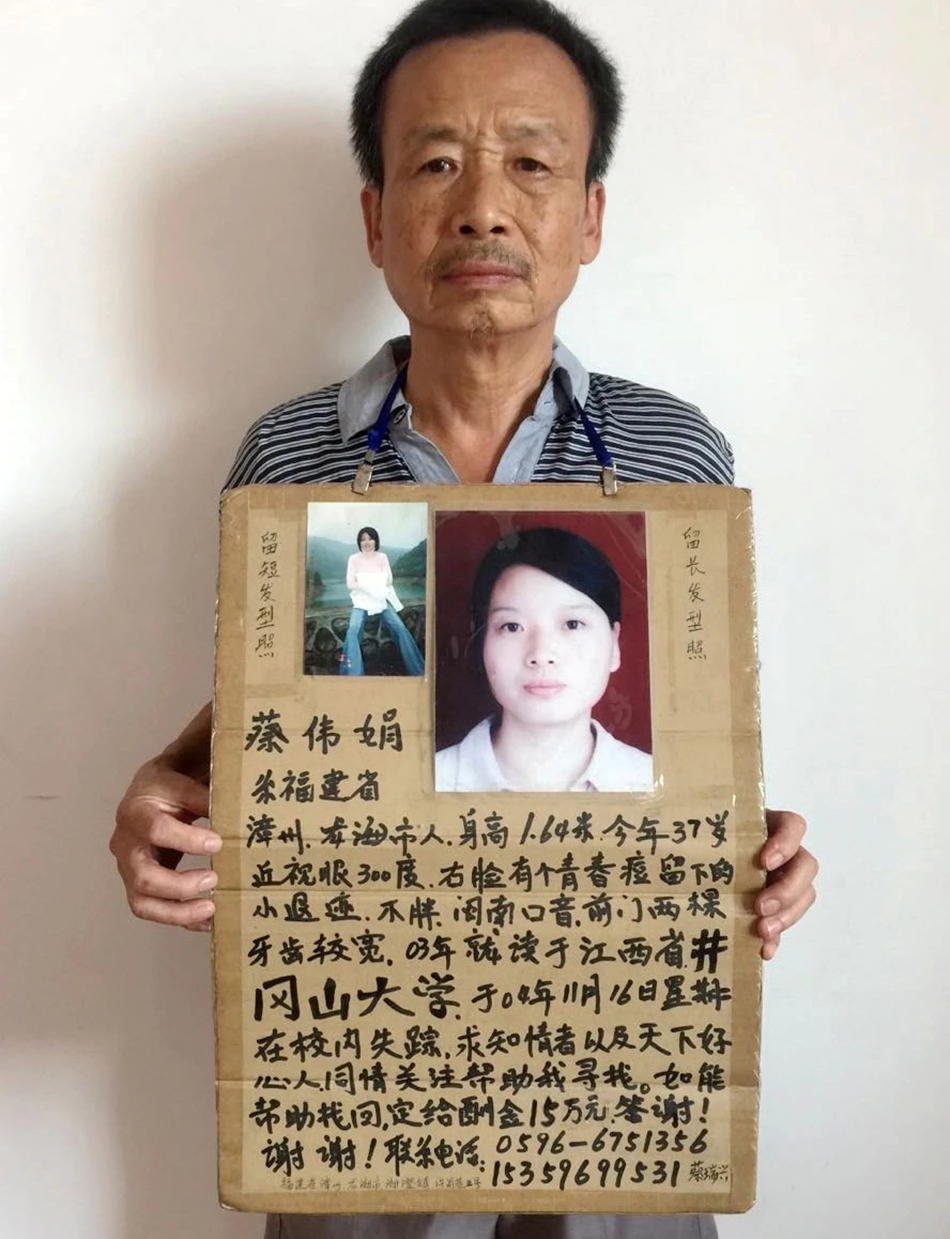 留短发型照
留长发型照
蔡伟娟
系福建省
漳州.龙海市人.身高1.64米.今年37岁
近视眼300度.右脸有个青春痘留下的
小退迹.不胖.闽南口音.前门两棵
牙齿较宽.03年就读于江西省井
冈山大学.于04年11月16日星期二
在校内失踪.求知情者以及天下好
心人同情关注帮助我寻找。如能
帮助找回,定给酬金15万元.答谢!
谢谢!联系电话:0596-6751356
15359699531 蔡瑞兴
福建省漳州.龙海市